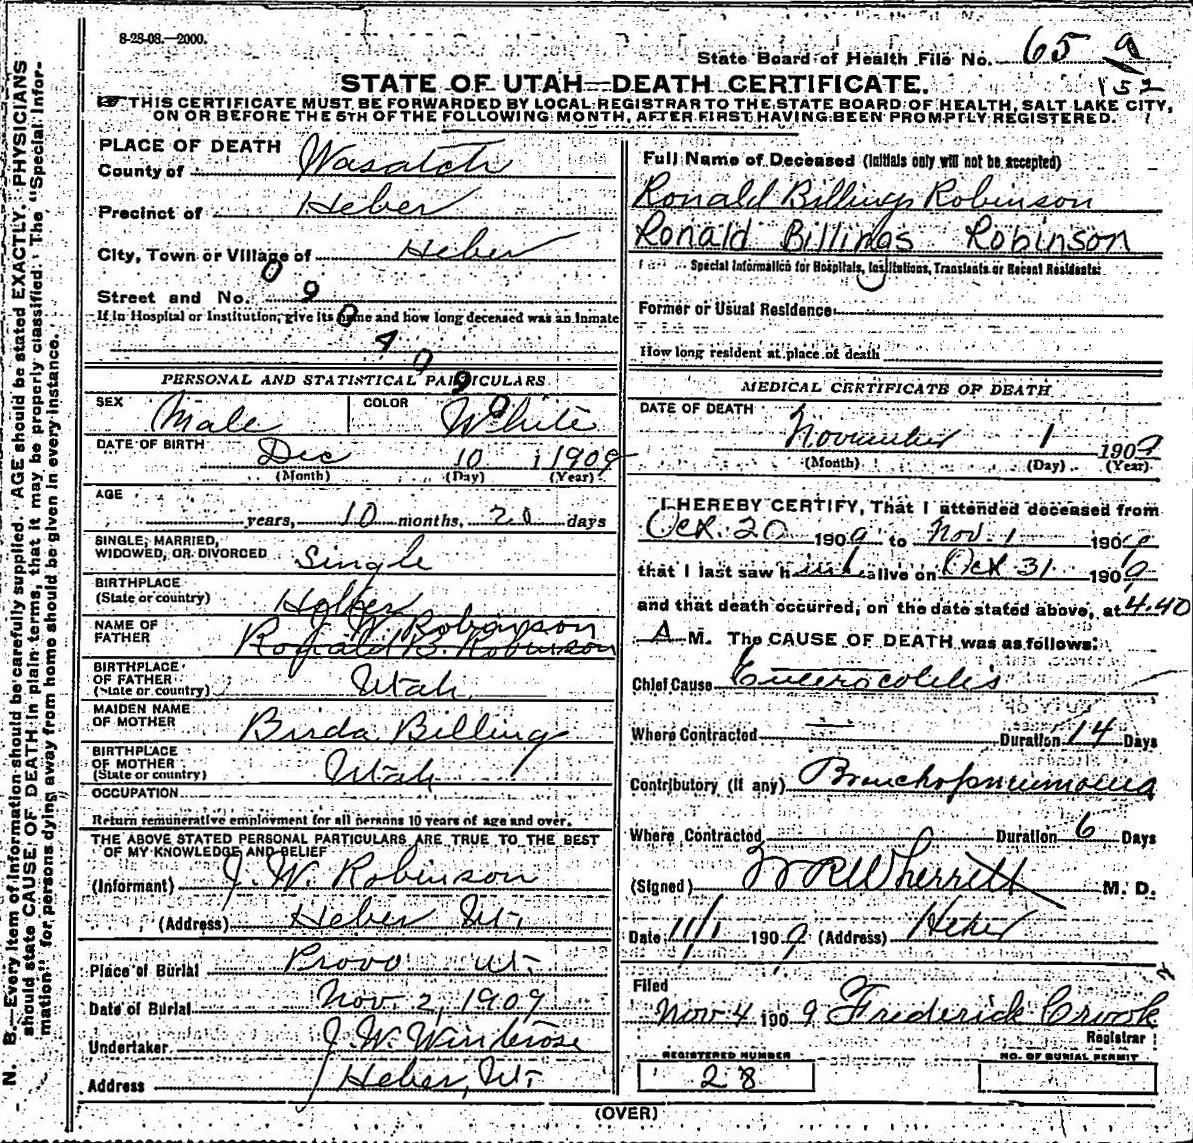 8-28-08.—2000.
State Board of Health File No. 65 a
152
STATE OF UTAH—DEATH CERTIFICATE.
THIS CERTIFICATE MUST BE FORWARDED BY LOCAL REGISTRAR TO THE STATE BOARD OF HEALTH, SALT LAKE CITY,
ON OR BEFORE THE 5TH OF THE FOLLOWING MONTH, AFTER FIRST HAVING BEEN PROMPTLY REGISTERED.
N. B.—Every item of information should be carefully supplied. AGE should be stated EXACTLY. PHYSICIANS
should state CAUSE OF DEATH in plain terms, that it may be properly classified. The "Special Infor-
mation" for persons dying away from home should be given in every instance.
PLACE OF DEATH
County of Wasatch
Precinct of Heber
City, Town or Village of Heber
Street and No.
If in Hospital or Institution, give its name and how long deceased was an inmate
0 9 0 4 0 9 0
PERSONAL AND STATISTICAL PARTICULARS
SEX Male COLOR White
DATE OF BIRTH Dec 10 1909
(Month) (Day) (Year)
AGE
years, 10 months, 20 days
SINGLE, MARRIED,
WIDOWED, OR DIVORCED Single
BIRTHPLACE
(State or country) Heber
NAME OF
FATHER J W Robinson
Ronald B. Robinson
BIRTHPLACE
OF FATHER
(State or country) Utah
MAIDEN NAME
OF MOTHER Birda Billing
BIRTHPLACE
OF MOTHER
(State or country) Utah
OCCUPATION
Return remunerative employment for all persons 10 years of age and over.
THE ABOVE STATED PERSONAL PARTICULARS ARE TRUE TO THE BEST
OF MY KNOWLEDGE AND BELIEF
(Informant) J. W. Robinson
(Address) Heber Ut.
Place of Burial Provo Ut.
Date of Burial Nov 2, 1909
Undertaker J. W. Winterose
Address Heber, Ut.
Full Name of Deceased (Initials only will not be accepted)
Ronald Billings Robinson
Ronald Billings Robinson
Special Information for Hospitals, Institutions, Transients or Recent Residents:
Former or Usual Residence
How long resident at place of death
MEDICAL CERTIFICATE OF DEATH
DATE OF DEATH
November 1 1909
(Month) (Day) (Year)
I HEREBY CERTIFY, That I attended deceased from
Oct. 20 1909 to Nov. 1 1909
that I last saw him alive on Oct 31 1909
and that death occurred, on the date stated above, at 4.40
A M. The CAUSE OF DEATH was as follows:
Chief Cause Enterocolitis
Where Contracted — Duration 14 Days
Contributory (if any) Bronchopneumonia
Where Contracted Duration 6 Days
(Signed) W R Wherritt M. D.
Date 11/1 1909 (Address) Heber
Filed
Nov 4 1909 Frederick Crook
Registrar
REGISTERED NUMBER
28
NO. OF BURIAL PERMIT
(OVER)